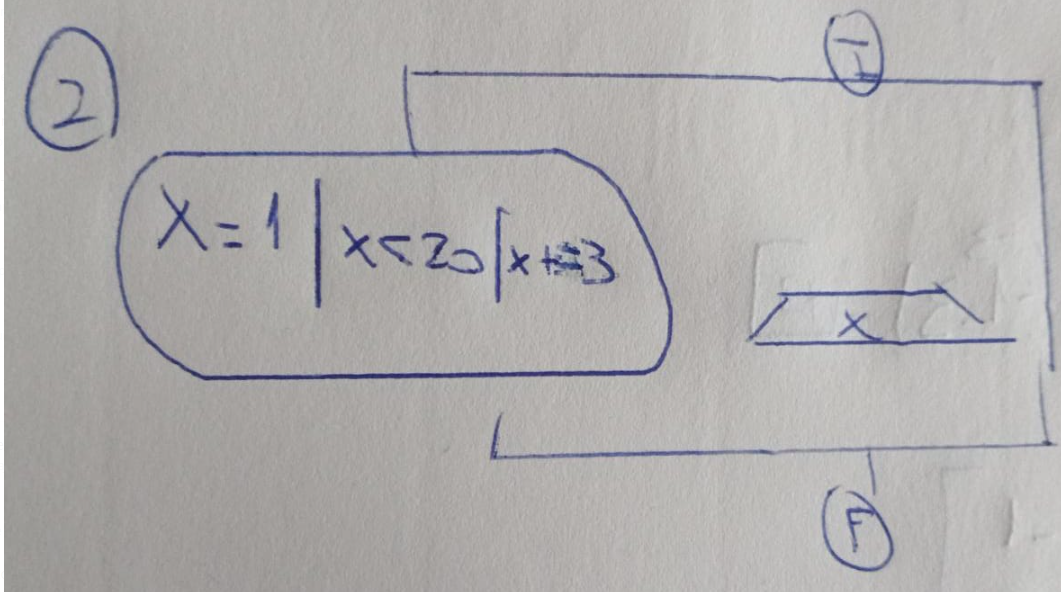 2
I
X=1 | x<20 | x+=3
X
F